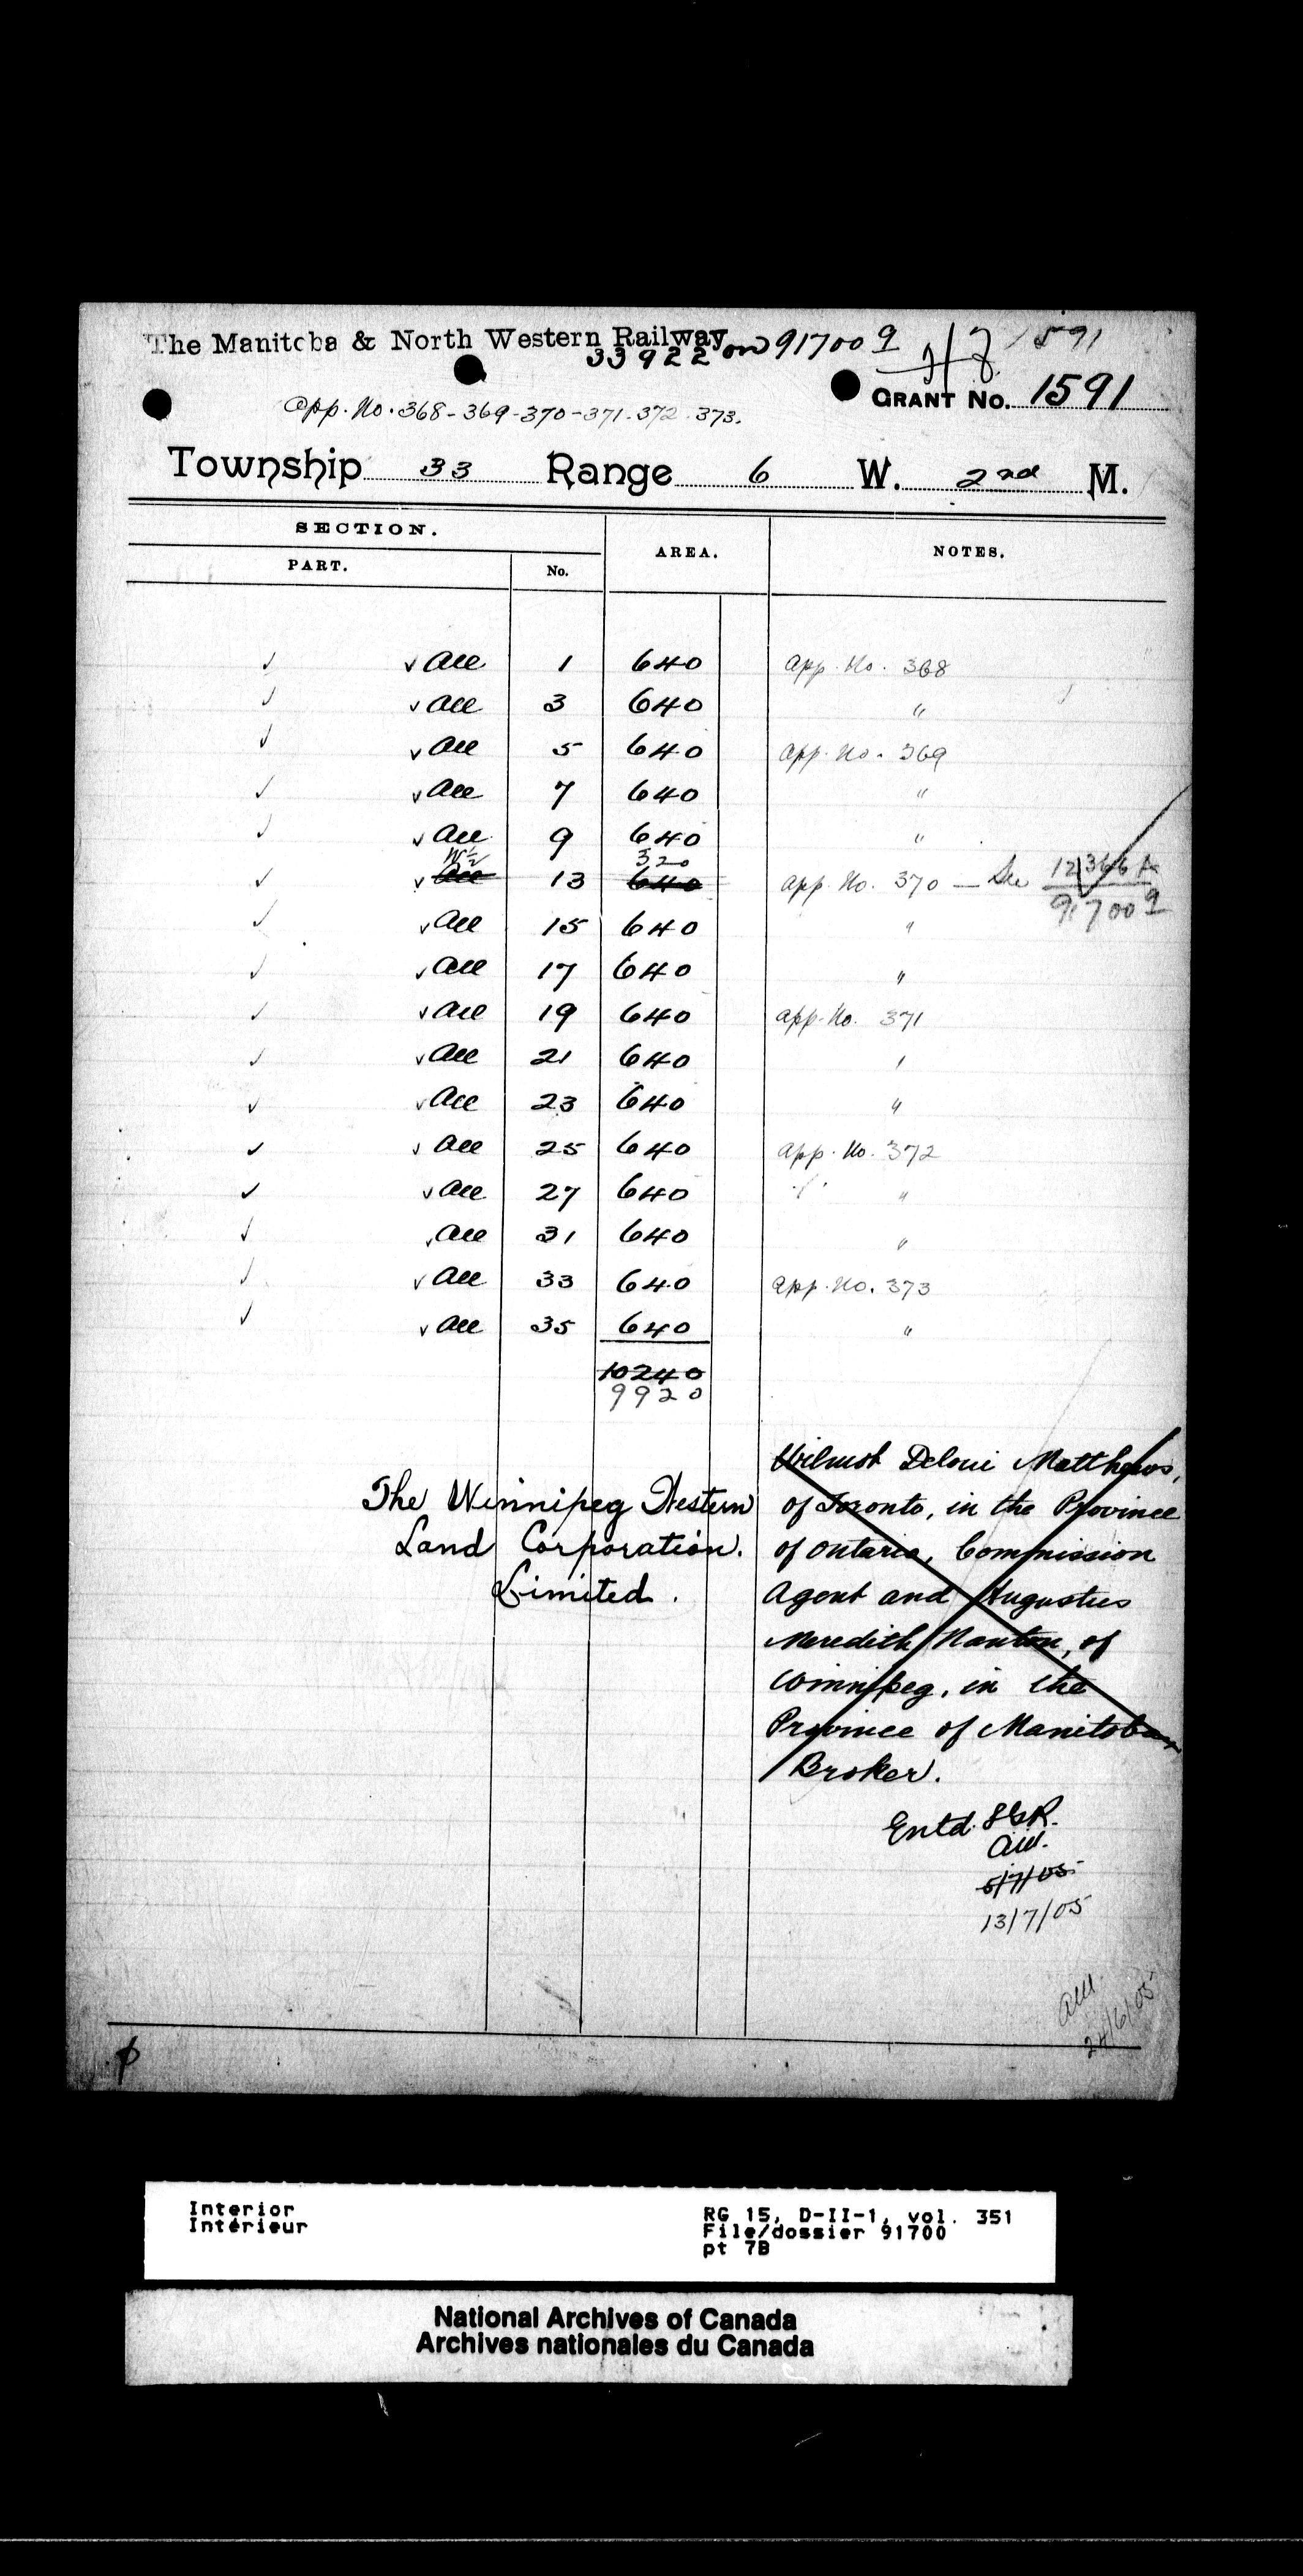 The Manitoba & North Western Railway
33922 on 91700 9 1591
GRANT No. 1591
App. No. 368-369-370-371.372.373.
Township 33 Range 6 W. 2nd M.
SECTION. AREA. NOTES.
PART. No.
All 1 640 App. No. 368
All 3 640 "
All 5 640 App. No. 369
All 7 640 "
All 9 640 "
W½ 320
All 13 640 App. No. 370 — See 12366 A
91700 9
All 15 640 "
All 17 640 "
All 19 640 App. No. 371
All 21 640 "
All 23 640 "
All 25 640 App. No. 372
All 27 640 "
All 31 640 "
All 33 640 App. No. 373
All 35 640 "
10240
9920
The Winnipeg Western
Land Corporation.
Limited.
Wilmot Deloui Matthews,
of Toronto, in the Province
of Ontario, Commission
Agent and Augustus
Meredith Nanton, of
Winnipeg, in the
Province of Manitoba
Broker.
Entd. SGR.
5/7/05
13/7/05
24/6/05
Interior
Intérieur
RG 15, D-II-1, vol. 351
File/dossier 91700
pt 7B
National Archives of Canada
Archives nationales du Canada